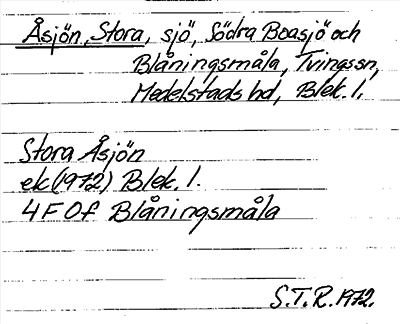 Åsjön, Stora, sjö, Södra Boasjö och
Blåningsmåla, Tvingssn,
Medelstads hd, Blek. l.
Stora Åsjön
ek (1972) Blek. l.
4F 0f Blåningsmåla
S.T.R. 1972.